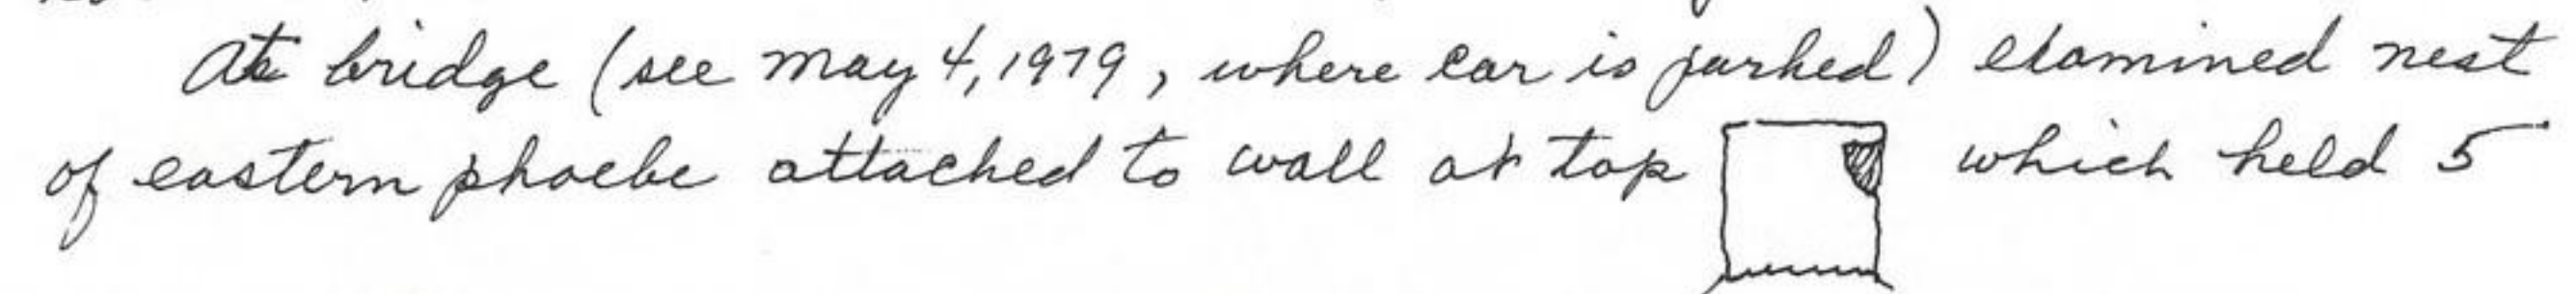 At bridge (see May 4, 1979, where car is parked) examined nest
of eastern phoebe attached to wall at top which held 5